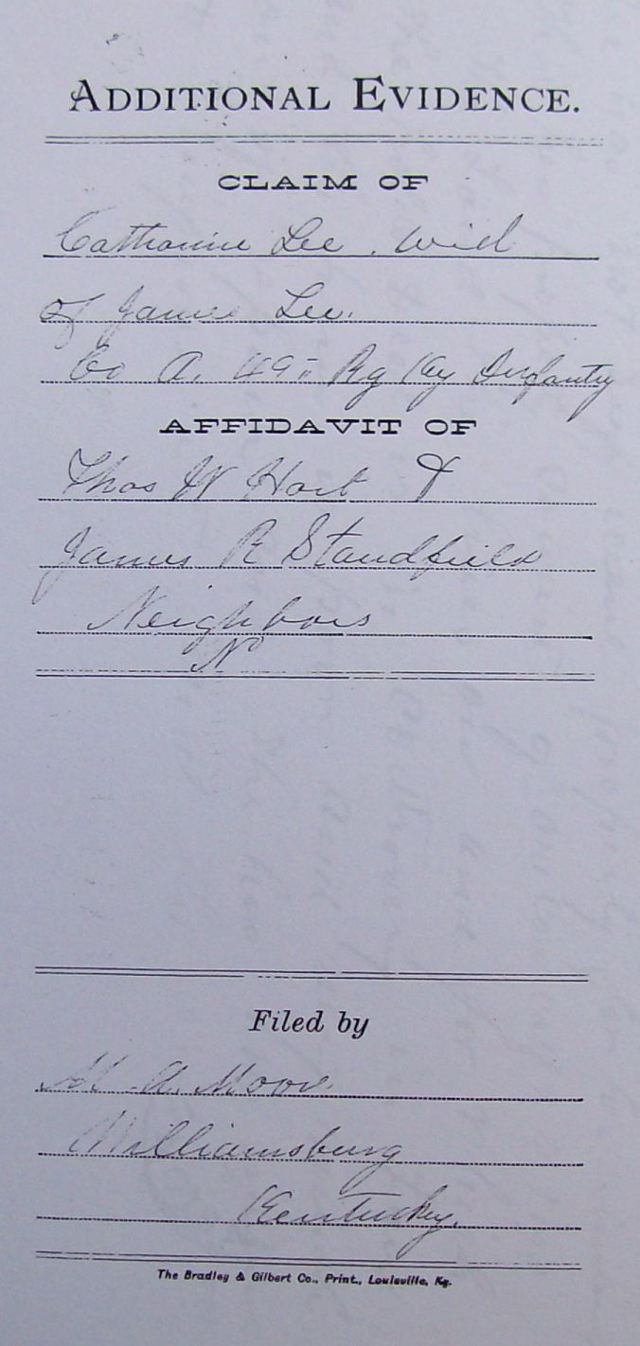 ADDITIONAL EVIDENCE.
CLAIM OF
Catharine Lee. Wid
of James Lee.
Co A. 49" Rg Ky Infantry
AFFIDAVIT OF
Thos W Hart &
James R Standfield
Neighbors
N
Filed by
A. Moore
Williamsburg
Kentucky.
The Bradley & Gilbert Co., Print., Louisville, Ky.